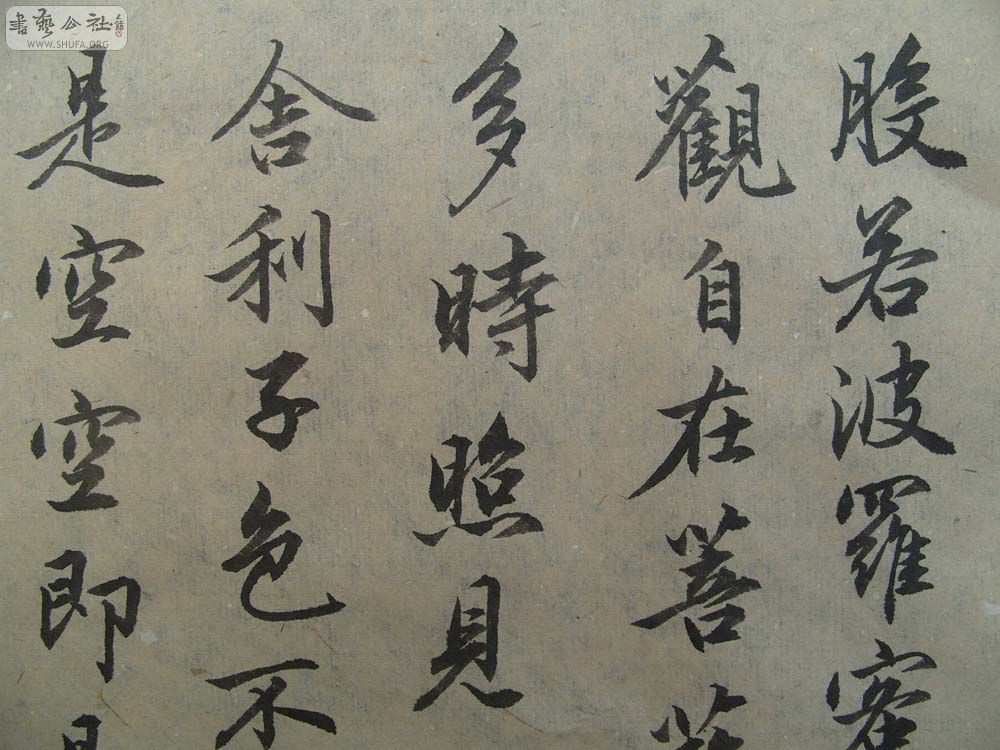 般若波羅密
觀自在菩薩
多時照見
舍利子色不
是空空即是
書藝公社
WWW.SHUFA.ORG